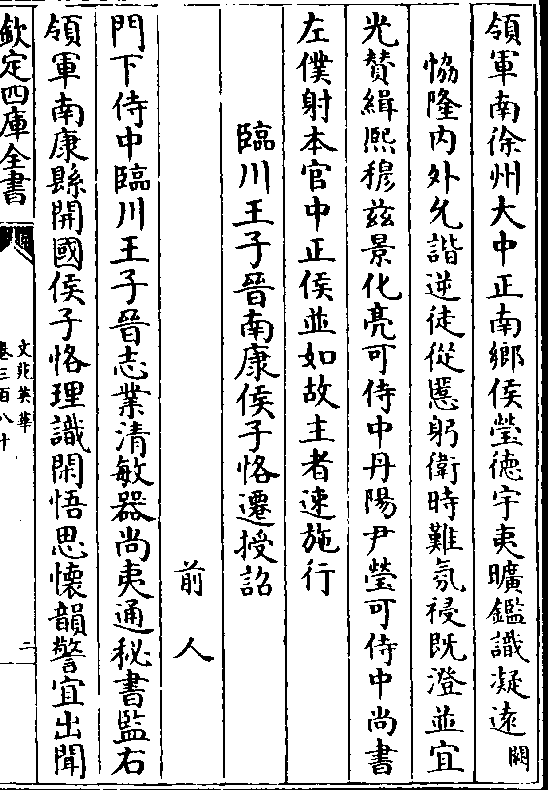 領軍南徐州大中正南鄉侯瑩德宇夷曠鑑識凝遠闕
恊隆内外允諧逆徒從慝躬衛時難氛祲既澄並宜
光賛緝熈穆兹景化亮可侍中丹陽尹瑩可侍中尚書
左僕射本官中正侯並如故主者速施行
臨川王子晉南康侯子恪遷授詔
前人
門下侍中臨川王子晉志業清敏器尚夷通秘書監右
領軍南康縣開國侯子恪理識閑悟思懷韻警宜出聞
欽定四庫全書
文苑英華
卷三百八十
二